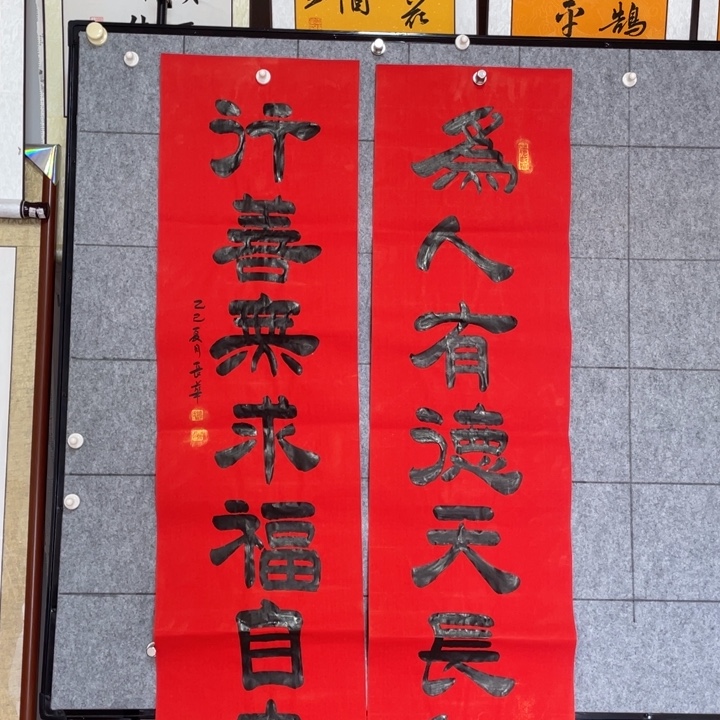 為人有德天長
行善無求福自
乙巳夏月
鵠平